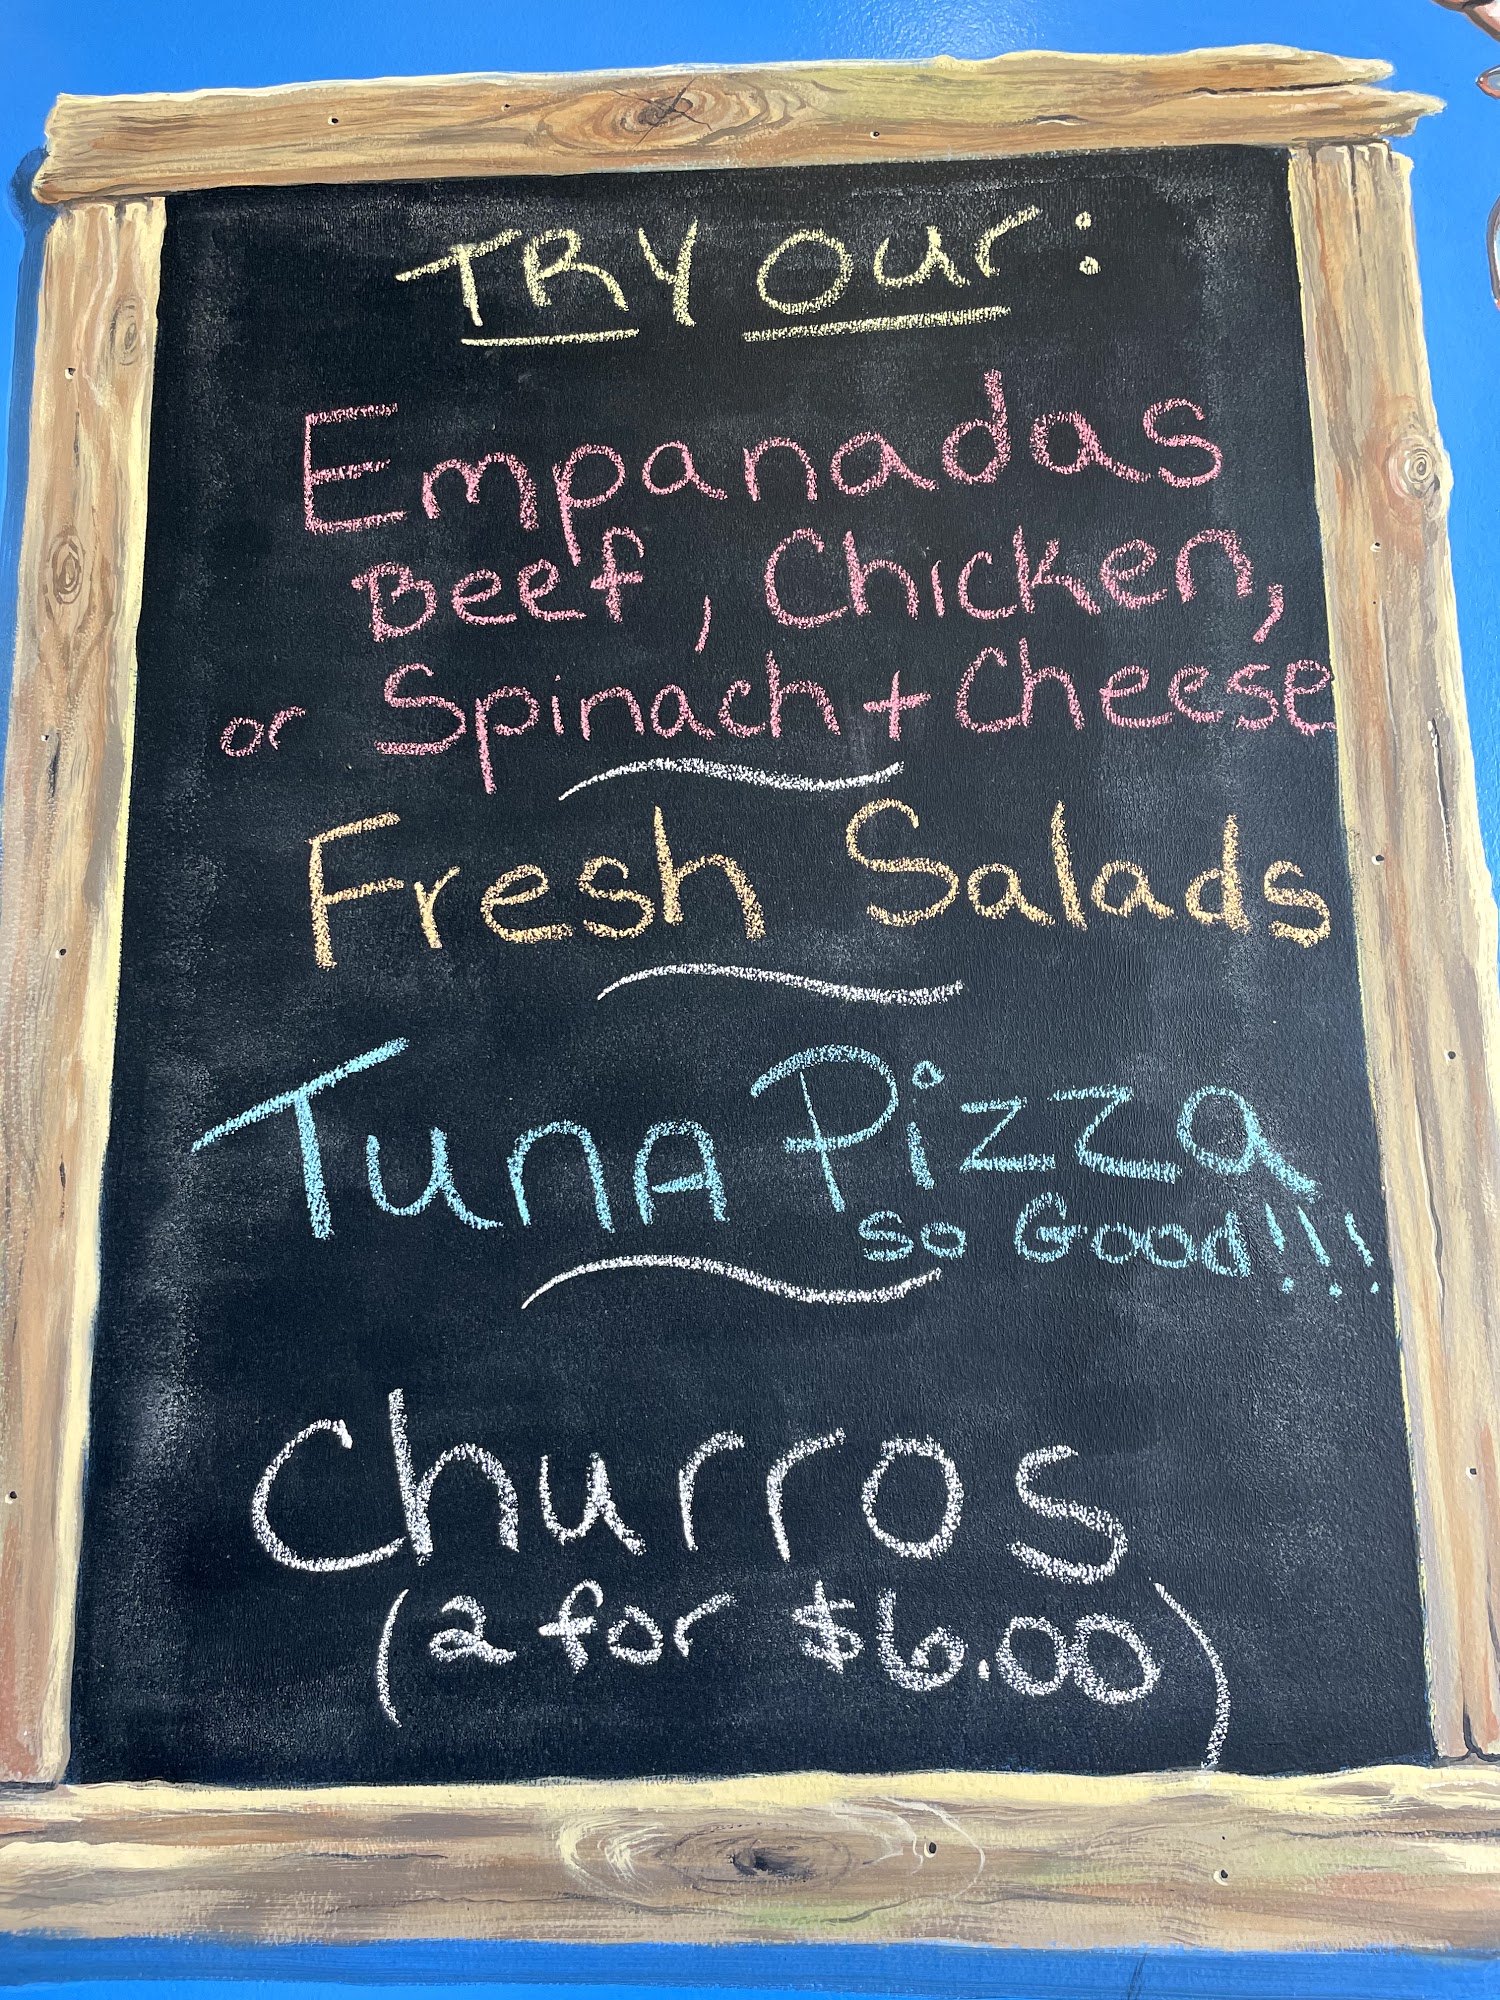 TRY our:
Empanadas
Beef, Chicken,
or Spinach + Cheese
Fresh Salads
Tuna Pizza
So Good!!!
Churros
(2 for $6.00)